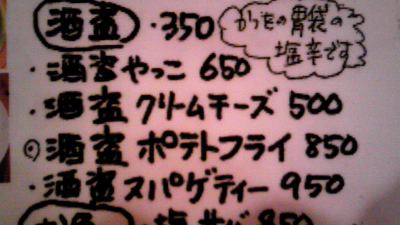 酒盗 ・350
かつおの胃袋の
塩辛です
・酒盗やっこ 650
・酒盗クリームチーズ 500
◎酒盗ポテトフライ 850
・酒盗スパゲティー 950